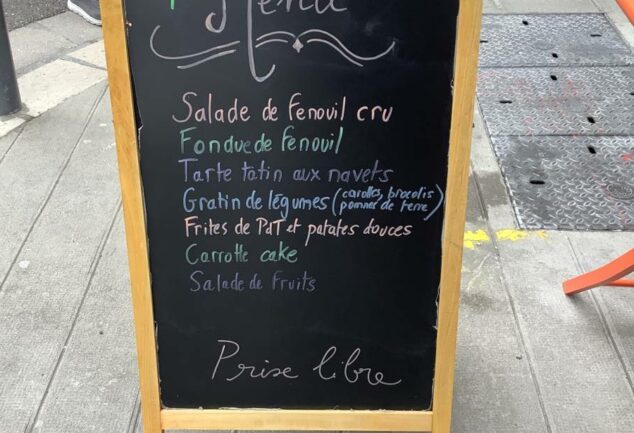 Menu
Salade de fenouil cru
Fondue de fenouil
Tarte tatin aux navets
Gratin de légumes (carottes, brocolis
pommes de terre)
Frites de PdT et patates douces
Carrotte cake
Salade de fruits
Prise libre